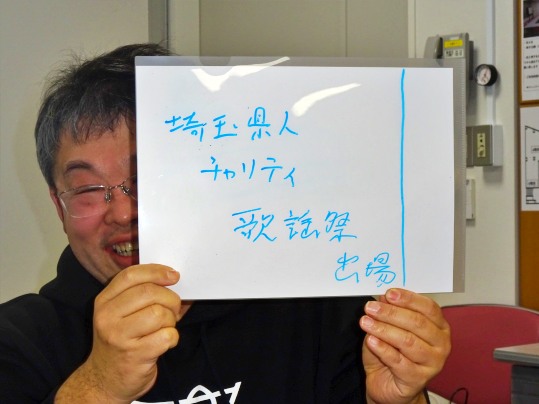 埼玉県人
チャリティ
歌謡祭
出場